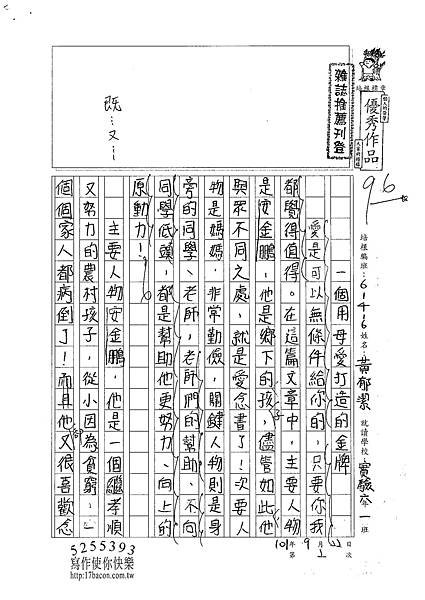 優秀作品
雜誌推薦刊登
96
培根編班：61416 姓名：黃郁潔 就讀學校：實驗 六年一班
一個用母愛打造的金牌
愛是可以無條件給你的，只要你我
都覺得值得。在這篇文章中，主要人物
是安金鵬，他是鄉下的孩，儘管如此他
與眾不同之處，就是愛念書了！次要人
物是媽媽，非常勤儉，關鍵人物則是身
旁的同學、老師，老師們的幫助、不向
同學低頭，都是幫助他更努力、向上的
原動力！
主要人物安金鵬，他是一個繼孝順
又努力的農村孩子，從小因為貧窮，一
個個家人都病倒了！而且他又很喜歡念
既…又…
101年9月 日
第1次
5255393
寫作使你快樂
http://17bacon.com.tw